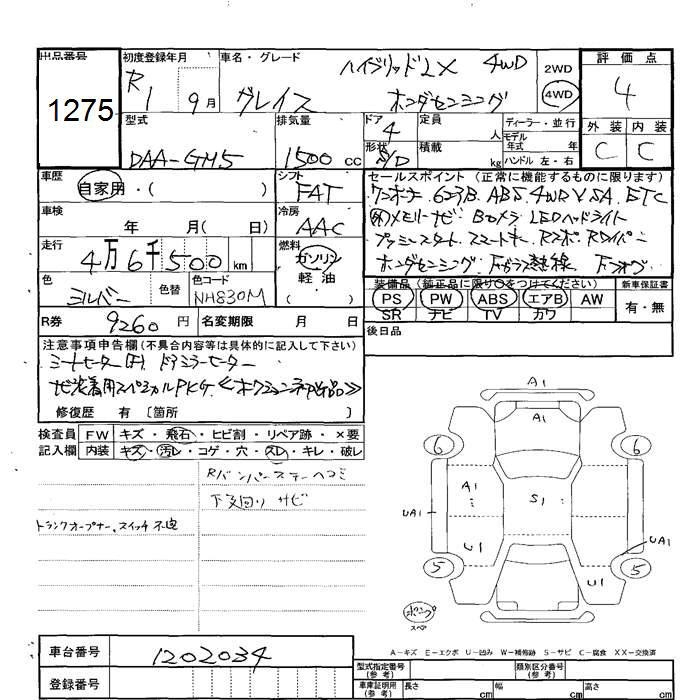 出品番号 初度登録年月 車名・グレード ハイブリッドLX 4WD 2WD 評価点
1275 R1 9月 グレイス ホンダセンシング 4WD 4
型式 排気量 ドア 4 定員 人 ディーラー・並行 外装 内装
DAA-GM5 1500cc 形状 S/D 積載 kg モデル年式 年 C C
ハンドル 左・右
車歴 自家用・( ) シフト FAT セールスポイント(正常に機能するものに限ります)
ワンオーナー 623B. ABS. 4WD VSA. ETC
車検 年 月( 日) 冷房 AAC メモリーナビ Bカメラ LEDヘッドライト
走行 4万6千500km 燃料 ガソリン 軽油 プッシュスタート スマートキー Rスポ Rワイパー
ホンダセンシング Fガラス熱線 Fフォグ
色 シルバー 色替 色コード NH830M 装備品(純正品に限り○をつけてください) 新車保証書
PS PW ABS エアB AW 有・無
SR ナビ TV カワ
R券 9260円 名変期限 月 日 後日品
注意事項申告欄(不具合内容等は具体的に記入して下さい)
シートヒーター(F) ドアミラーヒーター
ナビ装着用スペシャルPKG
修復歴 有 〔箇所 〕
検査員 FW キズ・飛石・ヒビ割・リペア跡・×要
記入欄 内装 キズ・汚レ・コゲ・穴・スレ・キレ・破レ
Rバンパーステーヘコミ
下廻り サビ
トランクオープナー.スイッチ不良
A1
A1
6 6
A1 S1
UA1 UA1
U1
5 5
U1
スペア
A-キズ E-エクボ U-凹み W-補修跡 S-サビ C-腐食 XX-交換済
車台番号 1202034 型式指定番号(参考) 類別区分番号(参考)
登録番号 車庫証明用(参考) 長さ cm 幅 cm 高さ cm